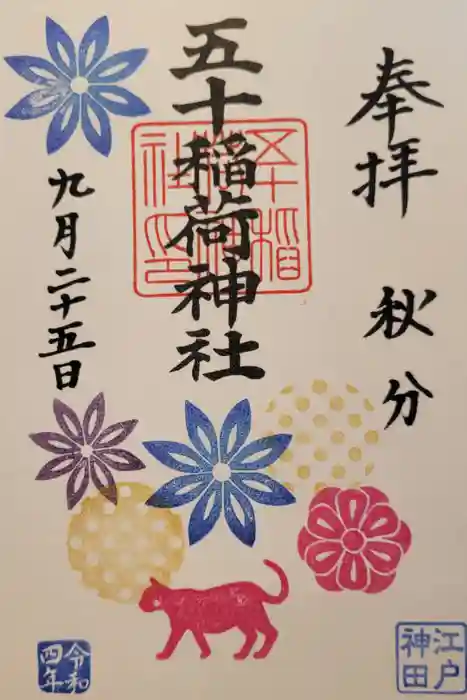 奉拝　秋分
五十稲荷神社
九月二十五日
令和四年
江戸神田